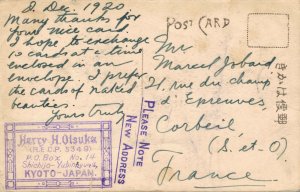 2 Dec. 1920
Many thanks for
your nice card
I hope to exchange
10 cards at a time
enclosed in an
envelope. I prefer
the cards of naked
beauties.
Yours truly
Harry H. Otsuka
(R.E.C.P. 5348)
P.O. Box, No. 14
KYOTO-JAPAN.
PLEASE NOTE
NEW ADDRESS
POST CARD
Mr
Marcel Jobard
21, rue du champ
d'Epreuves,
Corbeil
(S.-et-O.)
France
きかは便郵